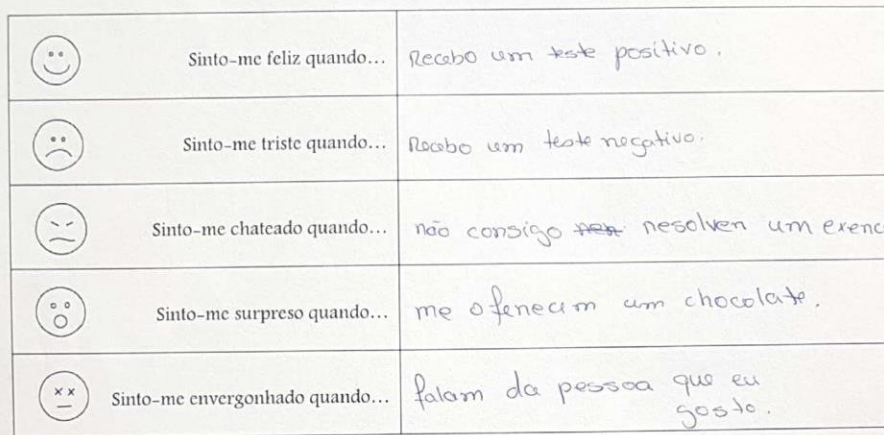 Sinto-me feliz quando... Recebo um teste positivo.
Sinto-me triste quando... Recebo um teste negativo.
Sinto-me chateado quando... não consigo resolver um exerc
Sinto-me surpreso quando... me oferecem um chocolate.
Sinto-me envergonhado quando... falam da pessoa que eu
gosto.